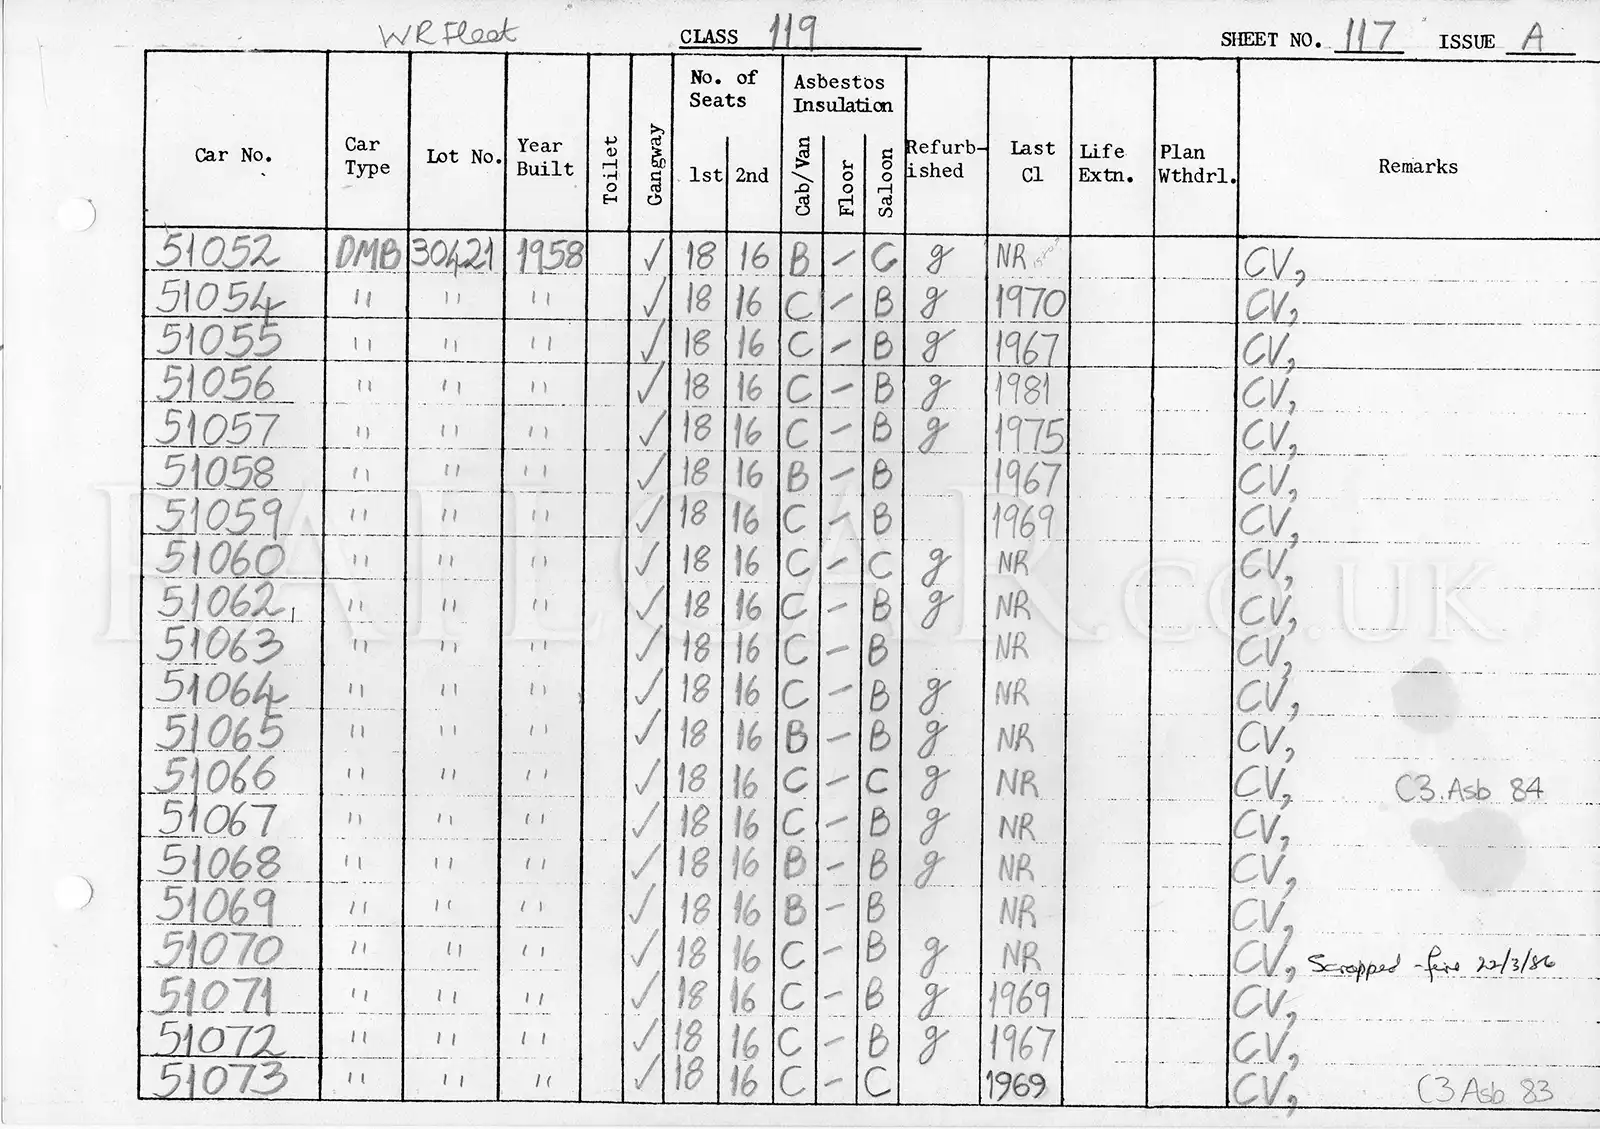 WR Fleet CLASS 119 SHEET NO. 117 ISSUE A
No. of Seats Asbestos Insulation
Car No. Car Type Lot No. Year Built Toilet Gangway 1st 2nd Cab/Van Floor Saloon Refurb-ished Last Cl Life Extn. Plan Wthdrl. Remarks
51052 DMB 30421 1958 ✓ 18 16 B - C g NR CV,
51054 " " " ✓ 18 16 C - B g 1970 CV,
51055 " " " ✓ 18 16 C - B g 1967 CV,
51056 " " " ✓ 18 16 C - B g 1981 CV,
51057 " " " ✓ 18 16 C - B g 1975 CV,
51058 " " " ✓ 18 16 B - B 1967 CV,
51059 " " " ✓ 18 16 C - B 1969 CV,
51060 " " " ✓ 18 16 C - C g NR CV,
51062 " " " ✓ 18 16 C - B g NR CV,
51063 " " " ✓ 18 16 C - B NR CV,
51064 " " " ✓ 18 16 C - B g NR CV,
51065 " " " ✓ 18 16 B - B g NR CV,
51066 " " " ✓ 18 16 C - C g NR CV, C3 Asb 84
51067 " " " ✓ 18 16 C - B g NR CV,
51068 " " " ✓ 18 16 B - B g NR CV,
51069 " " " ✓ 18 16 B - B NR CV,
51070 " " " ✓ 18 16 C - B g NR CV, Scrapped - fire 22/3/86
51071 " " " ✓ 18 16 C - B g 1969 CV,
51072 " " " ✓ 18 16 C - B g 1967 CV,
51073 " " " ✓ 18 16 C - C 1969 CV, C3 Asb 83
RAILCAR.CO.UK